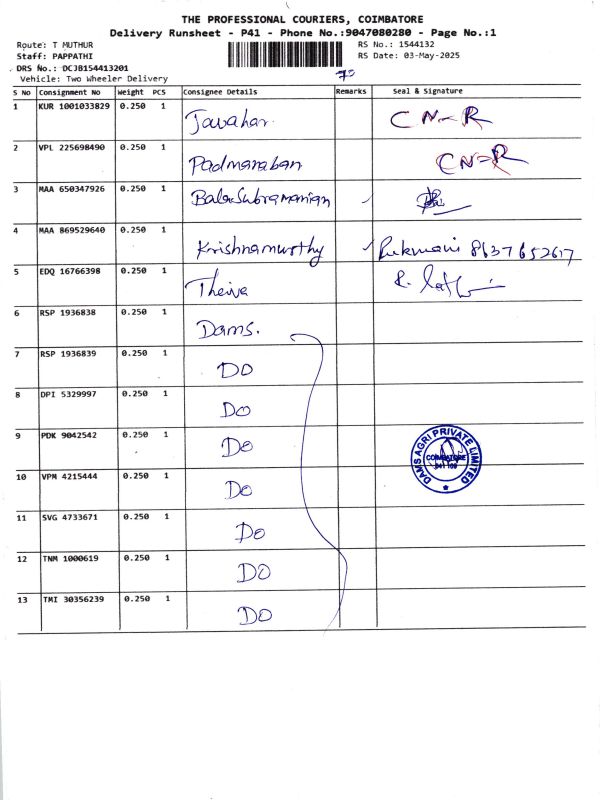 THE PROFESSIONAL COURIERS, COIMBATORE
Delivery Runsheet - P41 - Phone No.:9047080280 - Page No.:1
Route: T MUTHUR RS No.: 1544132
Staff: PAPPATHI RS Date: 03-May-2025
DRS No.: DCJB154413201
Vehicle: Two Wheeler Delivery 70
S No Consignment No Weight PCS Consignee Details Remarks Seal & Signature
1 KUR 1001033829 0.250 1 Javahar. CN-R
2 VPL 225698490 0.250 1 Padmanaban CN-R
3 MAA 650347926 0.250 1 BalaSubramanian ✓
4 MAA 869529640 0.250 1 Krishnamurthy ✓ Rukmani 8637652617
5 EDQ 16766398 0.250 1 Theiva
6 RSP 1936838 0.250 1 Dams.
7 RSP 1936839 0.250 1 DO
8 DPI 5329997 0.250 1 DO
9 PDK 9042542 0.250 1 DO
DAMS AGRI PRIVATE LIMITED
COIMBATORE
641 109
10 VPM 4215444 0.250 1 DO
11 SVG 4733671 0.250 1 DO
12 TNM 1000619 0.250 1 DO
13 TMI 30356239 0.250 1 DO